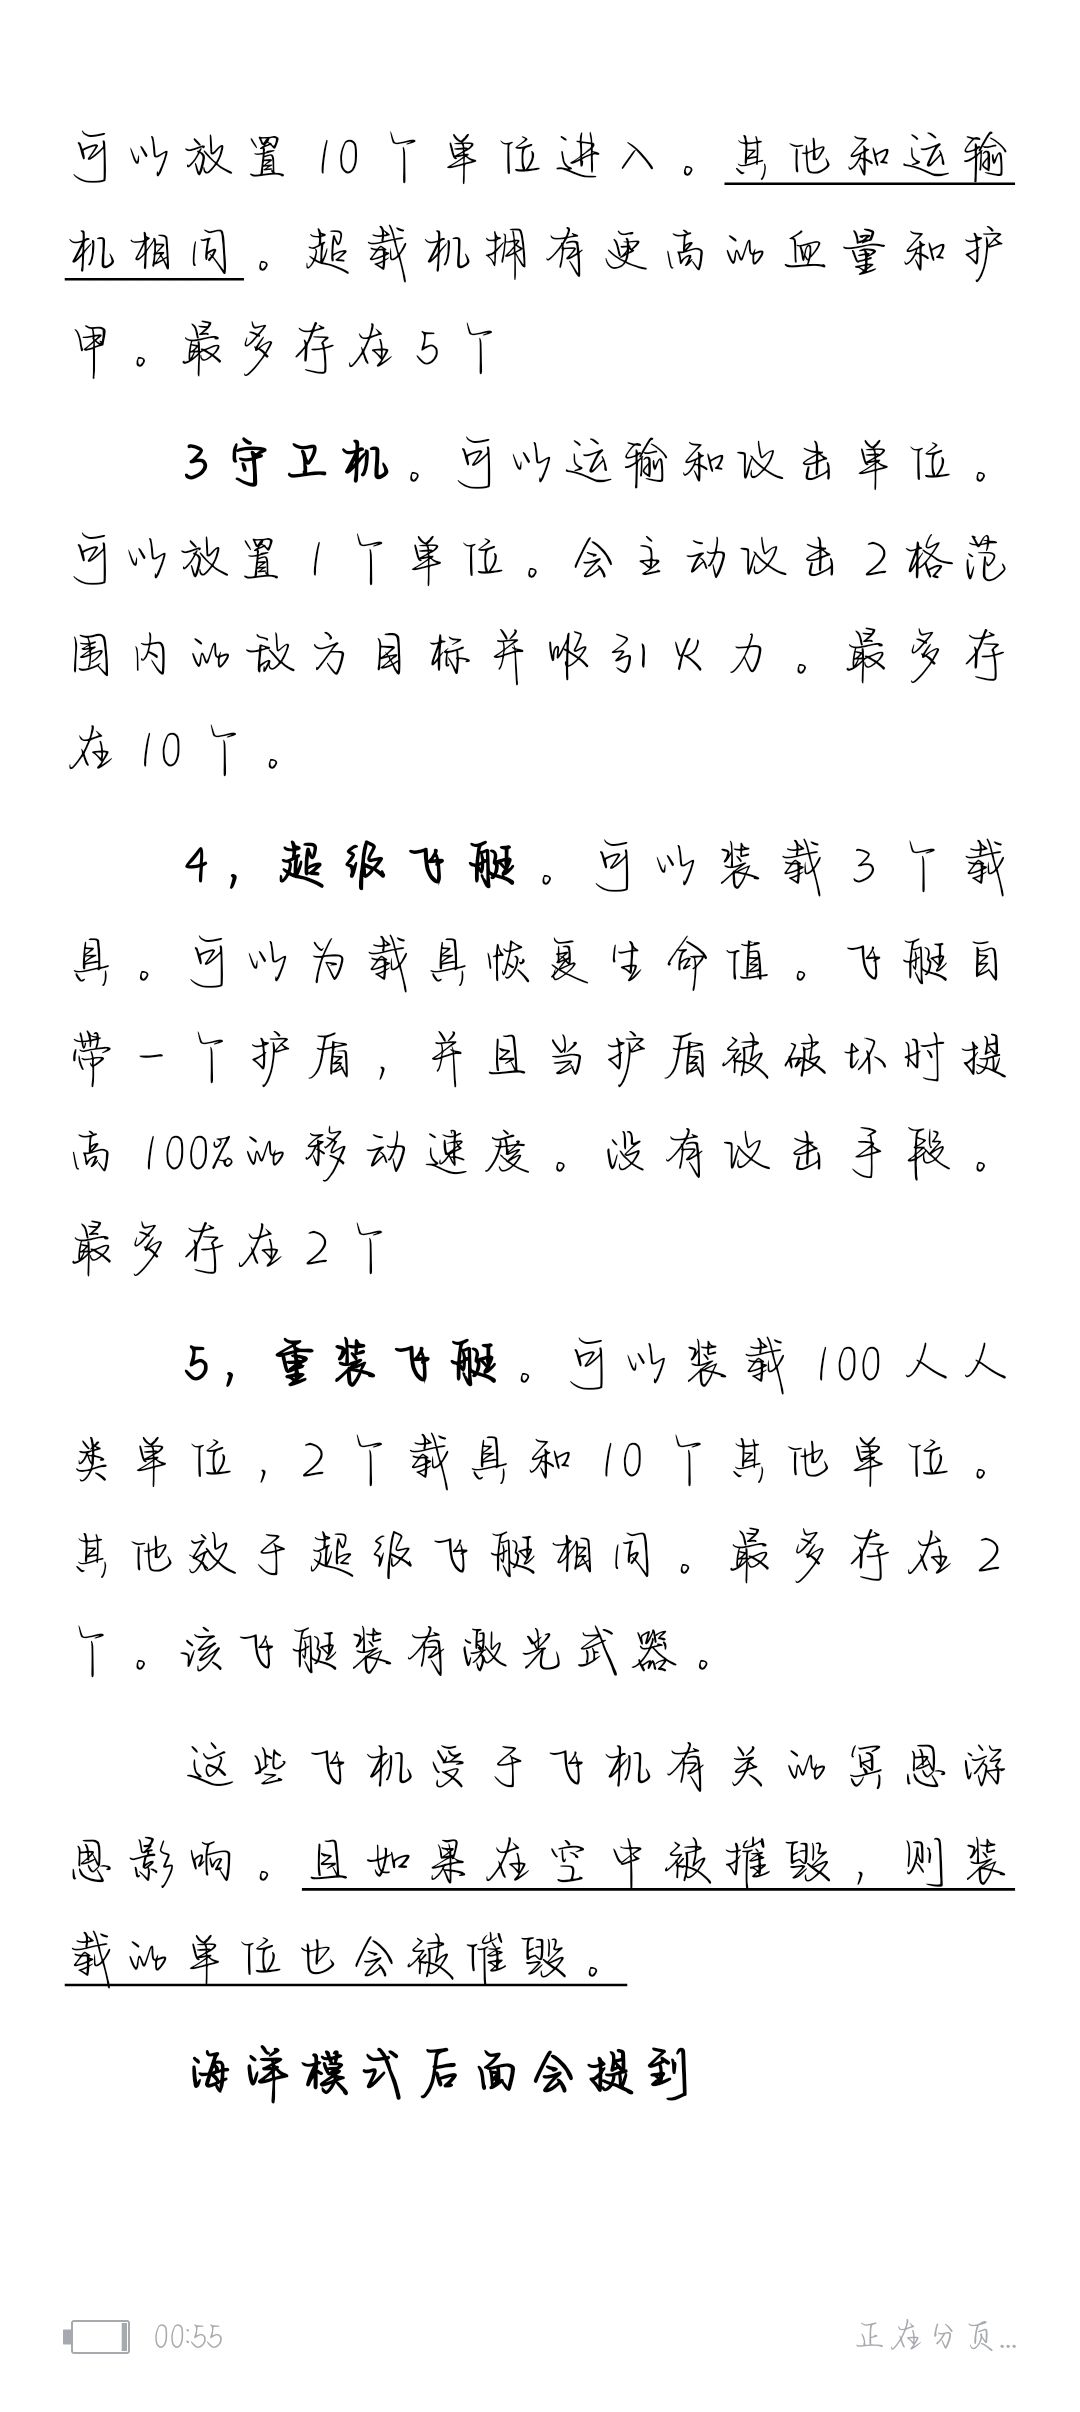 可以放置10个单位进入。其他和运输
机相同。超载机拥有更高的血量和护
甲。最多存在5个
3守卫机。可以运输和攻击单位。
可以放置1个单位。会主动攻击2格范
围内的敌方目标并吸引火力。最多存
在10个。
4，超级飞艇。可以装载3个载
具。可以为载具恢复生命值。飞艇自
带一个护盾，并且当护盾被破坏时提
高100%的移动速度。没有攻击手段。
最多存在2个
5，重装飞艇。可以装载100人人
类单位，2个载具和10个其他单位。
其他效于超级飞艇相同。最多存在2
个。该飞艇装有激光武器。
这些飞机受于飞机有关的冥思游
思影响。且如果在空中被摧毁，则装
载的单位也会被催毁。
海洋模式后面会提到
00:55
正在分页...